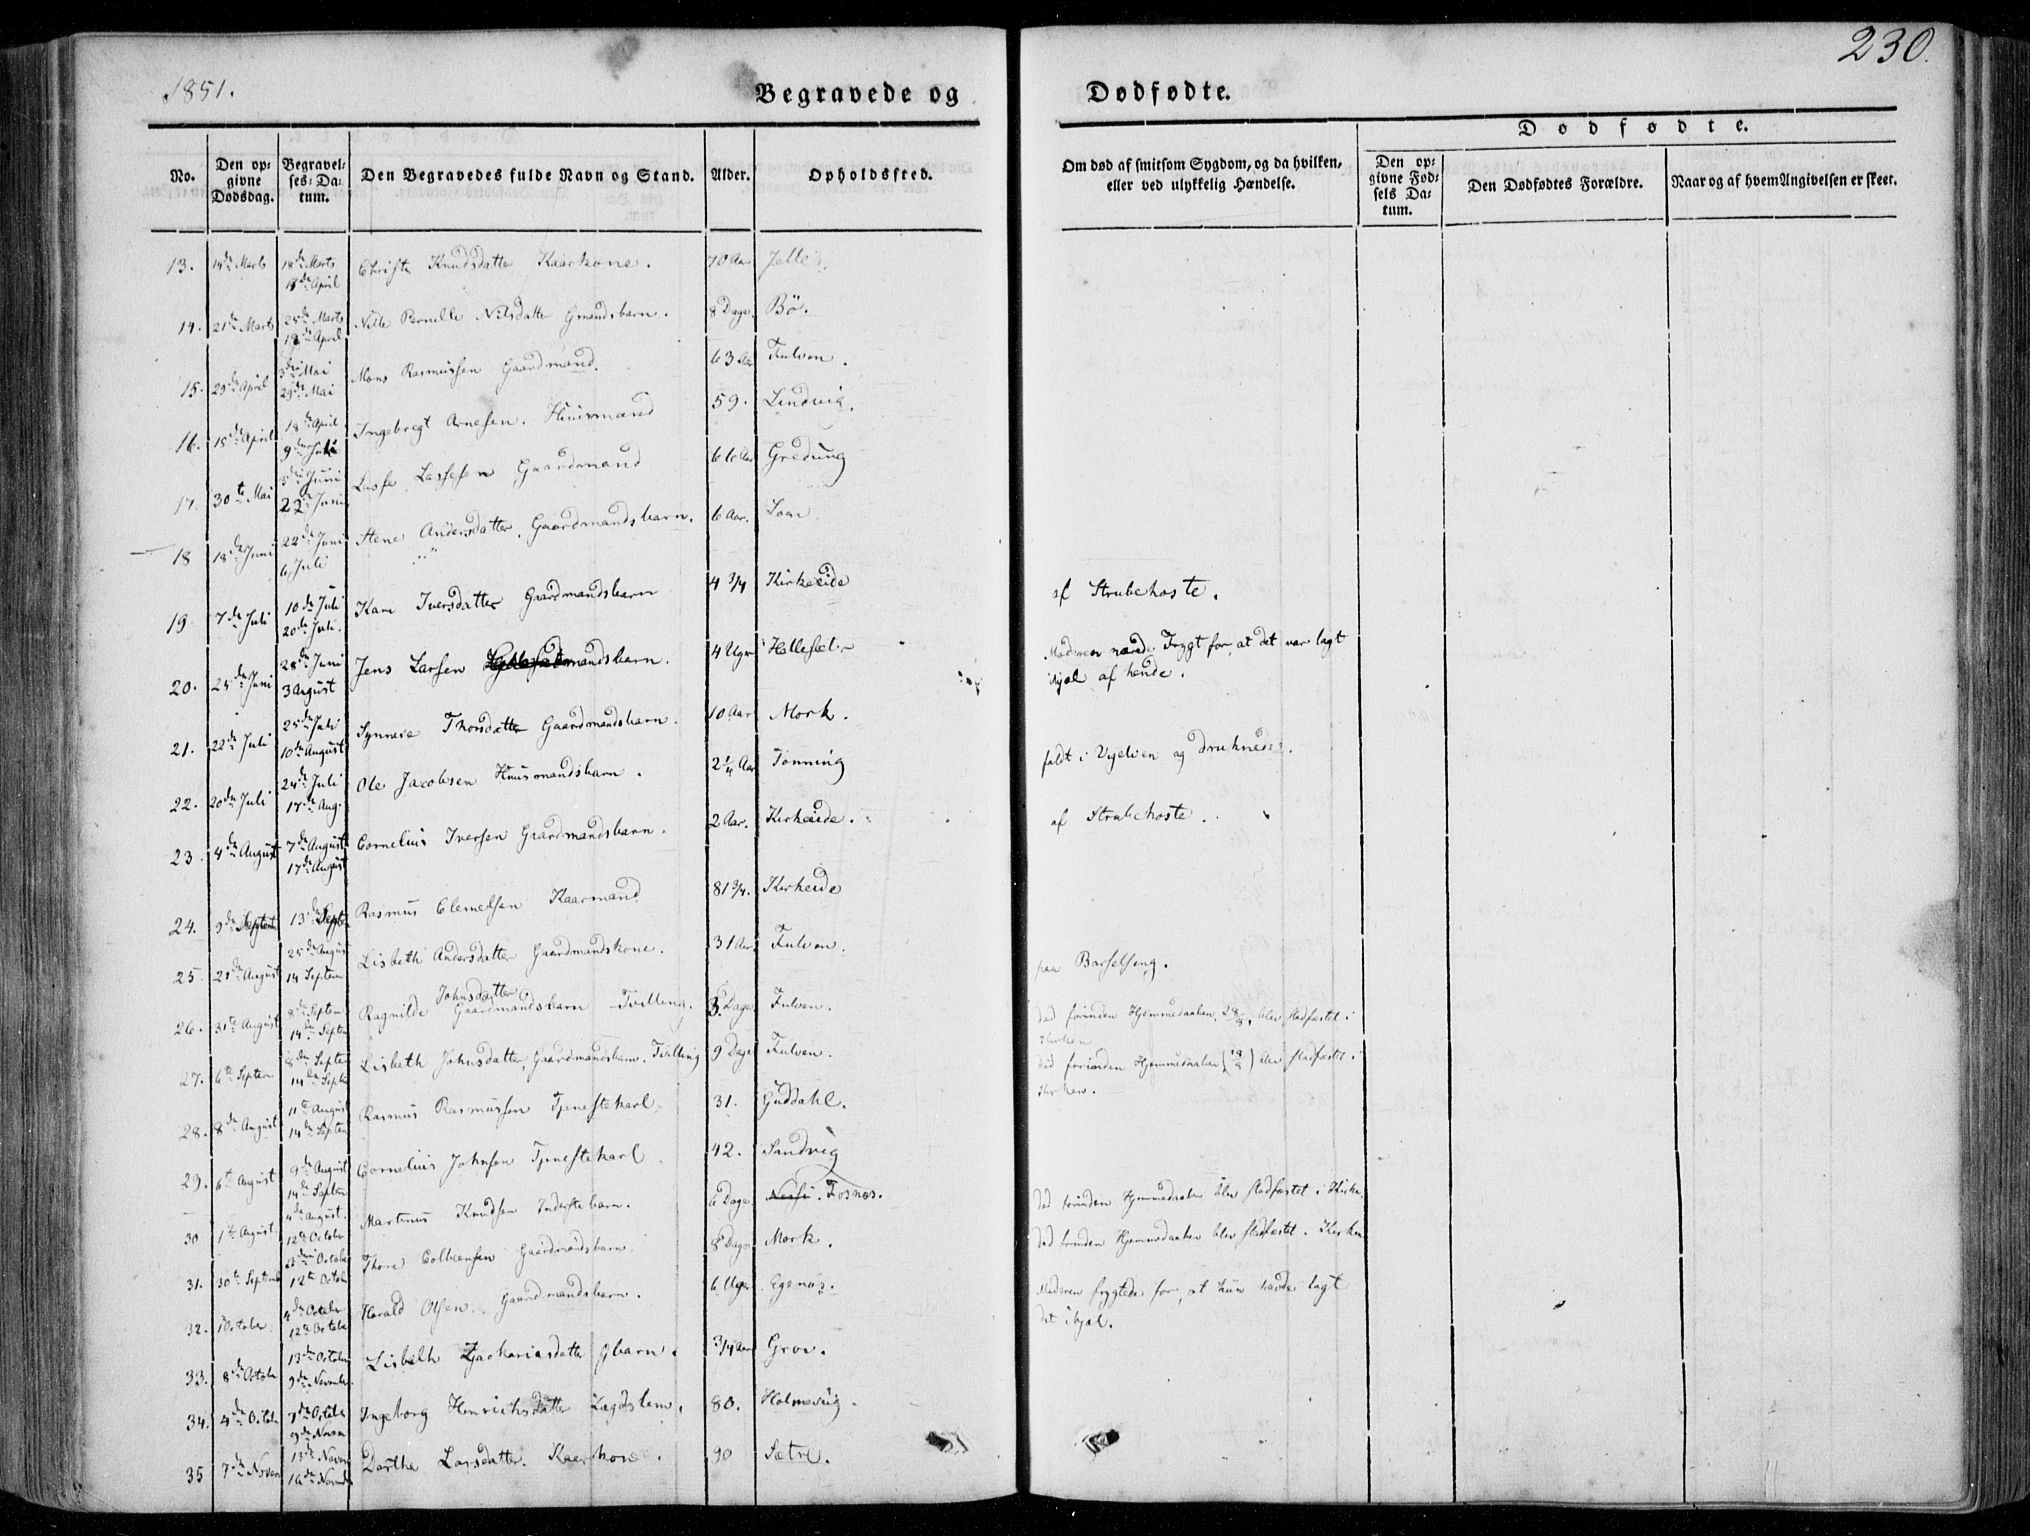 230.
1851.
Begravede og Dødfødte.
Dødfødte.
No. Den opgivne Dødsdag. Begravelses-Datum. Den Begravedes fulde Navn og Stand. Alder. Opholdssted. Om død af smitsom Sygdom, og da hvilken, eller ved ulykkelig Hændelse. Den opgivne Fødsels Datum. Den Dødfødtes Forældre. Naar og af hvem Angivelsen er skeet.
13. 14de Marts 18de Marts April Christi Knudsdatter Kaarkone. 70 Aar
14. 21de Marts 25de Marts 18de April Pernelle Nilsdatter Gmandsbarn. 8 Dage. Bö.
15. 29de April Mai 29de Mai Mons Rasmussen Gaardmand. 63 Aar Fulven.
16. 15de April 18de April 9de Juli Ingebregt Arnesen. Huusmand 59. Lindvig.
17. 30te Mai 5de Juni 22de Juni Lasse Lassesen Gaardmand 66 Aar Gredung
18 18de Juni 22de Juni 6 Juli Stene Andersdatter, Gaardmandsbarn. 6 Aar. Loen
19 7de Juli 10de Juli 20de Juli. Kari Iversdatter Gaardmandsbarn 4 3/4 Kirkeeide af Strubehoste.
20. 25de Juni 28de Juni 3 August Jens Larsen mandsbarn. 4 Uger Hellesæter Moderen nærede Frygt for, at det var lagt
ihjel af hende.
21. 22de Juli 25de Juli 10de August Synneve Thorsdatter Gaardmandsbarn. 10 Aar Mork.
22. 20de Juli 24de Juli 17de Aug. Ole Jacobsen Huusmandsbarn. 2 1/4 Aar Tonning faldt i Elven og druknede.
23 4de August 7de August 17de August Cornelius Iversen Gaardmandsbarn. 2 Aar. Kirkeeide. af Strubehoste.
24. 9de Septem 13de Septe Rasmus Clemetsen Kaarmand 81 3/4. Kirkeide
25. 21de August 25de August 14 Septem Lisbeth Andersdatter Gaardmandskone. 31 Aar Fulven. paa Barselseng.
26. 31te August 8de Septem 14de Septem Ragnilde Johnsdatter Gaardmandsbarn Tvilling. 3 Dage Fulven. död forinden Hjemmedaaben, 28/8, blev stadfæstet i
Kirken
27. 6te Septem 8de Septem 14de Septe Lisbeth Johnsdatter, Gaardmandsbarn. Tvilling 9 Dage Fulven. död forinden Hjemmedaaben blev stadfæstet i
Kirken.
28. 8de August 11te August 14de Septem Rasmus Rasmussen Tjenestekarl. 31. Guddahl.
29. 6te August 9de August 14de Septem Cornelius Johnsen Tjenestekarl 42. Sandvig
30 1te August 4de August. 12te October Martinus Knudsen Inderstebarn. 6 Dage Fosnæs. död forinden Hjemmedaaben blev stadfæstet i Kirke
31. 30te Septemb October 12te October Thore Colbeensen Gaardmandsbarn. 8 Dage Mork. död forinden Hjemmedaaben blev stadfæstet i Kirken
32. October 4de October 12te Octobe Harald Olsen. Gaardmandsbarn. 6 Uger Egenæs. Moderen frygtede for, at hun havde lagt
det ihjel.
33. 8de Octobe 13de October 9de November Lisbeth Zachariasdatter Gbarn. 3/4 Aar Grov.
34. 4de Octobe 7de October 9de Novem Ingeborg Henrichsdatter Lægdslem. 80. Holmevig.
35 7de Novem 13de Novem 16de November Dorthe Larsdatter. Kaarkone. 90 Sætre.